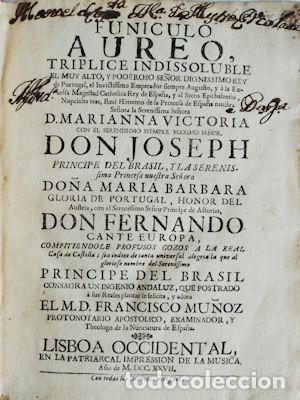 Manuel
FUNICULO
AUREO,
TRIPLICE INDISSOLUBLE
EL MUY ALTO, Y PODEROSO SEÑOR DIGNISSIMO REY
de Portugal, el Invictissimo Emperador siempre Augusto, y à la Ex-
celsa Magestad Catholica Rey de España, y al Sacro Epithalamio
Nupciales teas, Real Himeneo de la Princesa de España nuestra
Señora la Serenissima Señora
D. MARIANNA VICTORIA
CON EL SERENISSIMO SIEMPRE MAXIMO SEÑOR,
DON JOSEPH
PRINCIPE DEL BRASIL, Y LA SERENIS-
sima Princesa nuestra Señora
DOÑA MARIA BARBARA
GLORIA DE PORTUGAL, HONOR DEL
Austria, con el Serenissimo Señor Principe de Asturias,
DON FERNANDO
CANTE EUROPA,
COMPITIENDOLE PROFUSOS GOZOS A LA REAL
Casa de Castilla; sea indice de tanta universal alegria la que al
glorioso nombre del Serenissimo
PRINCIPE DEL BRASIL
CONSAGRA UN INGENIO ANDALUZ, QUE POSTRADO
à sus Reales plantas le felicita, y adora
EL M.D. FRANCISCO MUÑOZ
PROTONOTARIO APOSTOLICO, EXAMINADOR, Y
Theologo de la Nunciatura de España.
LISBOA OCCIDENTAL,
EN LA PATRIARCAL IMPRESSION DE LA MUSICA,
Año de M. DCC. XXVII.
Con todas las
todocoleccion.net